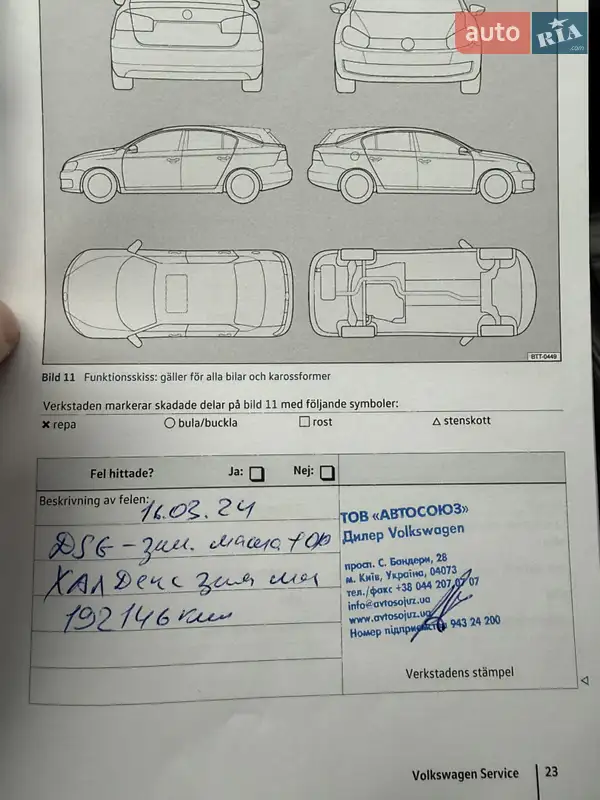 auto RIA.com
BTT-0449
Bild 11 Funktionsskiss: gäller för alla bilar och karossformer
Verkstaden markerar skadade delar på bild 11 med följande symboler:
repa bula/buckla rost stenskott
Fel hittade? Ja: Nej:
Beskrivning av felen:
16.03.24
DSG - зам. масла + ф
Халдекс зам ма
192146 км
ТОВ «АВТОСОЮЗ»
Дилер Volkswagen
просп. С. Бандери, 28
м. Київ, Україна, 04073
тел./факс +38 044 207 07 07
info@avtosojuz.ua
www.avtosojuz.ua
Номер підприємства 943 24 200
Verkstadens stämpel
Volkswagen Service 23